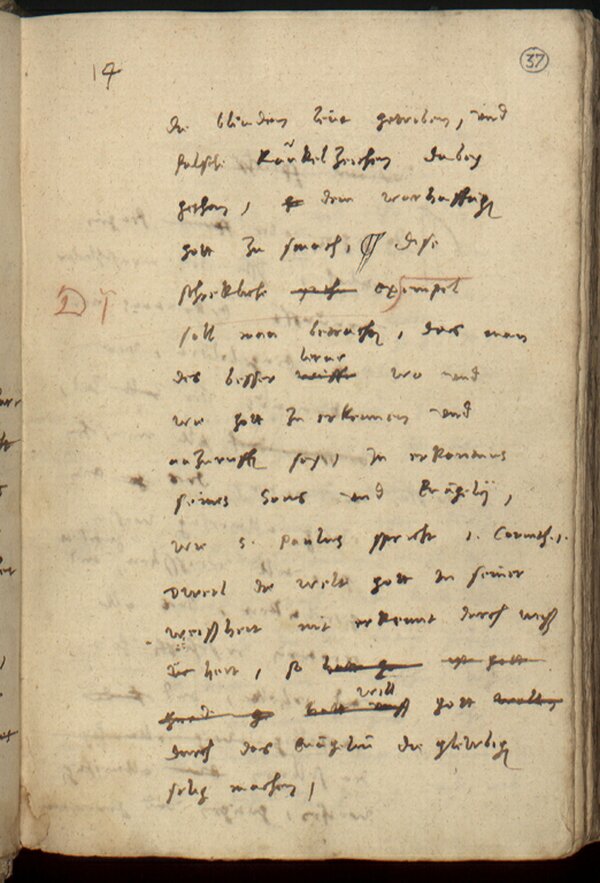 14
37
die blinden leut getriben, und
falsche Rauckelzeichen dabey
gethan, dem warhafftigen
gott zu smach, Dise
schrekliche exempel
soll man betrachten, das man
lerne
des besser wo und
wie gott zu erkennen und
anzuruffen sey, in erkantnus
seines Sons und Evangelij,
wie S. Paulus spricht 1. Corinth. 1.
Dweil die welt gott in seiner
weißheit nit erkennt durch weiß
heit, so
will
gott
durch das Evangelium die glewbigen
selig machen,